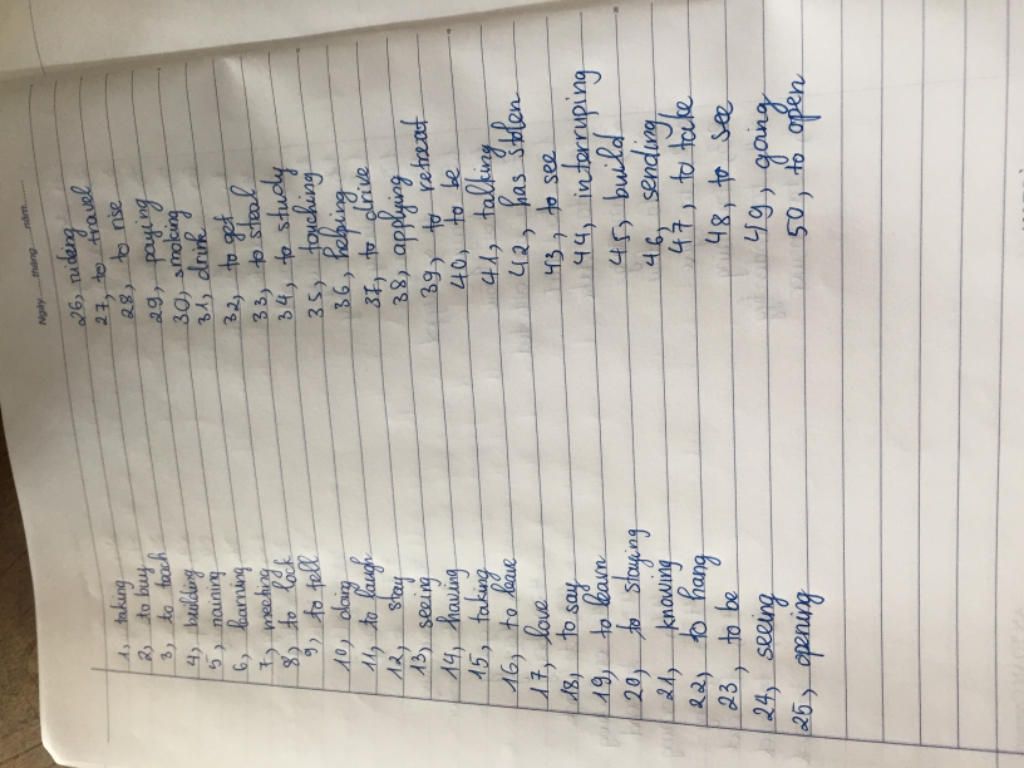 Ngày......tháng......năm......
1, taking
2, to buy
3, to teach
4, building
5, raining
6, learning
7, meeting
8, to lock
9, to tell
10, doing
11, to laugh
12, stay
13, seeing
14, having
15, taking
16, to leave
17, love
18, to say
19, to learn
20, to staying
21, knowing
22, to hang
23, to be
24, seeing
25, opening
26, riderg
27, to travel
28, to rise
29, paying
30, smoking
31, drink
32, to get
33, to steal
34, to study
35, touching
36, helping
37, to drive
38, applying
39, to retreat
40, to be
41, talking
42, has stolen
43, to see
44, interruping
45, build
46, sending
47, to take
48, to see
49, going
50, to open